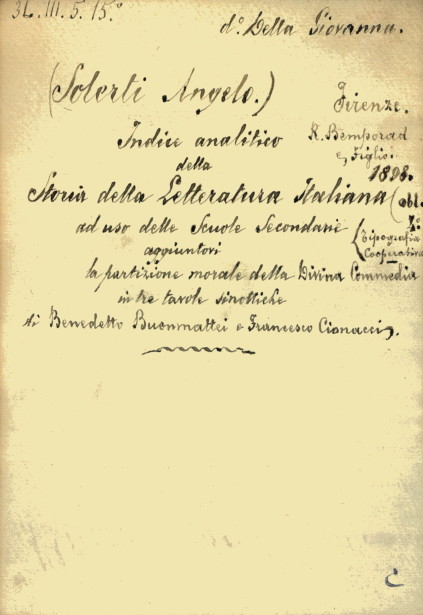 34. III. 5. 15.°
d.° Della Giovanna.
(Solerti Angelo.)
Firenze.
R. Bemporad
e Figlio.
1898.
Indice analitico
della
Storia della Letteratura Italiana (obl.
4°
ad uso delle Scuole Secondarie
(Tipografia
Cooperativa
aggiuntovi
la partizione morale della Divina Commedia
in tre tavole sinottiche
di Benedetto Buonmattei e Francesco Cionacci).
C